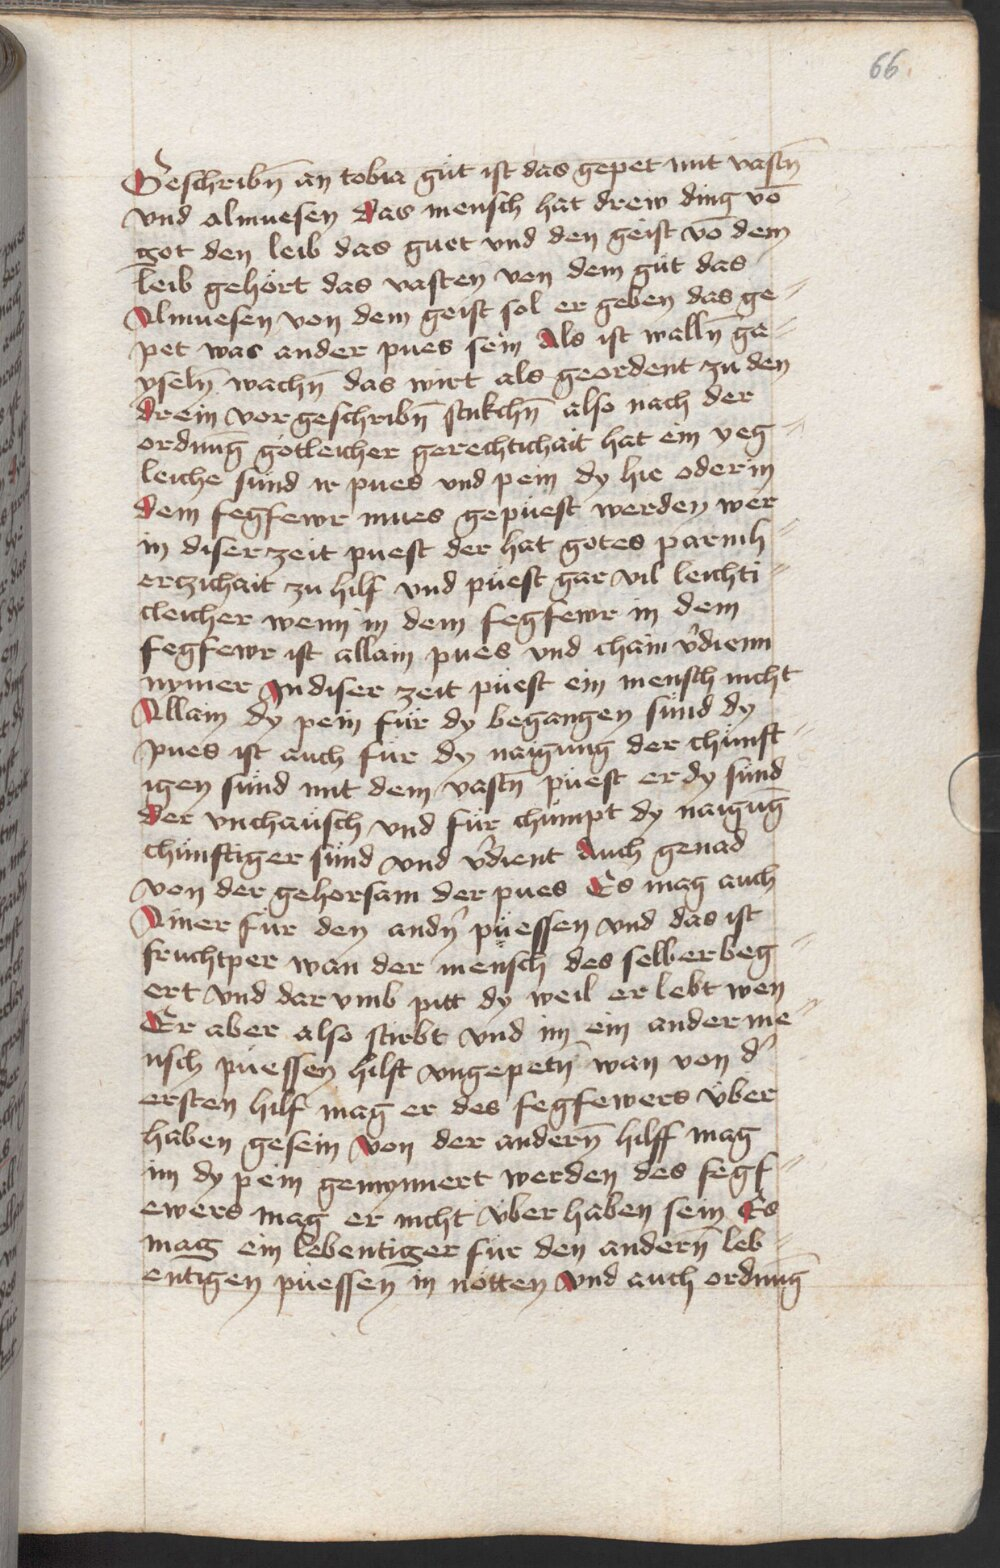 66.
Geschribn̄ an tobia gůt ist das gepet mit vastn̄
vnd almuesen das mensch hat drew ding vō
got den leib das guet vnd den geist vō dem
leib gehört das vasten von dem gůt das
Almuesen von dem geist sol er geben das ge⸗
pet was ander pues sein Als ist walln̄ ge⸗
yseln̄ wachn̄ das wirt als geordent zu den
drein vorgeschribn̄ stukchn̄ also nach der
ordnung götleicher gerechtichait hat ein yeg⸗
leiche sund ir pues vnd pein dy hie oder in
dem fegfewr mues gepüest werden wer
in diser zeit puest der hat gotes parmh⸗
erczichait zu hilf vnd püest gar vil leichti⸗
cleicher wenn in dem fegfewr in dem
fegfewr ist allain pues vnd chain v̄dienn
nymer In diser zeit püest ein mensch nicht
Allain dy pein für dy begangen sünd dy
pues ist auch für dy naigung der chünft⸗
igen sünd mit dem vastn̄ püest er dy sünd
der vnchaüsch vnd für chümpt dy naigūg
chünftiger sünd vnd v̄dient Auch genad
von der gehorsam der pues Es mag auch
Ainer für den andn̄ püessen vnd das ist
fruchtper wan der mensch des selber beg⸗
ert vnd dar vmb pitt dy weil er lebt wen
Er aber also stirbt vnd im ein ander me⸗
nsch püessen hilft vngepetn̄ wan von d̄
ersten hilf mag er des fegfewers vber
haben gesein Von der andern̄ hilff mag
im dy pein gemynnert werden des fegf⸗
ewers mag er nicht vber haben sein Es
mag ein lebentiger für den andern̄ leb⸗
entigen püessen in nötten Vnd auch ordnūg